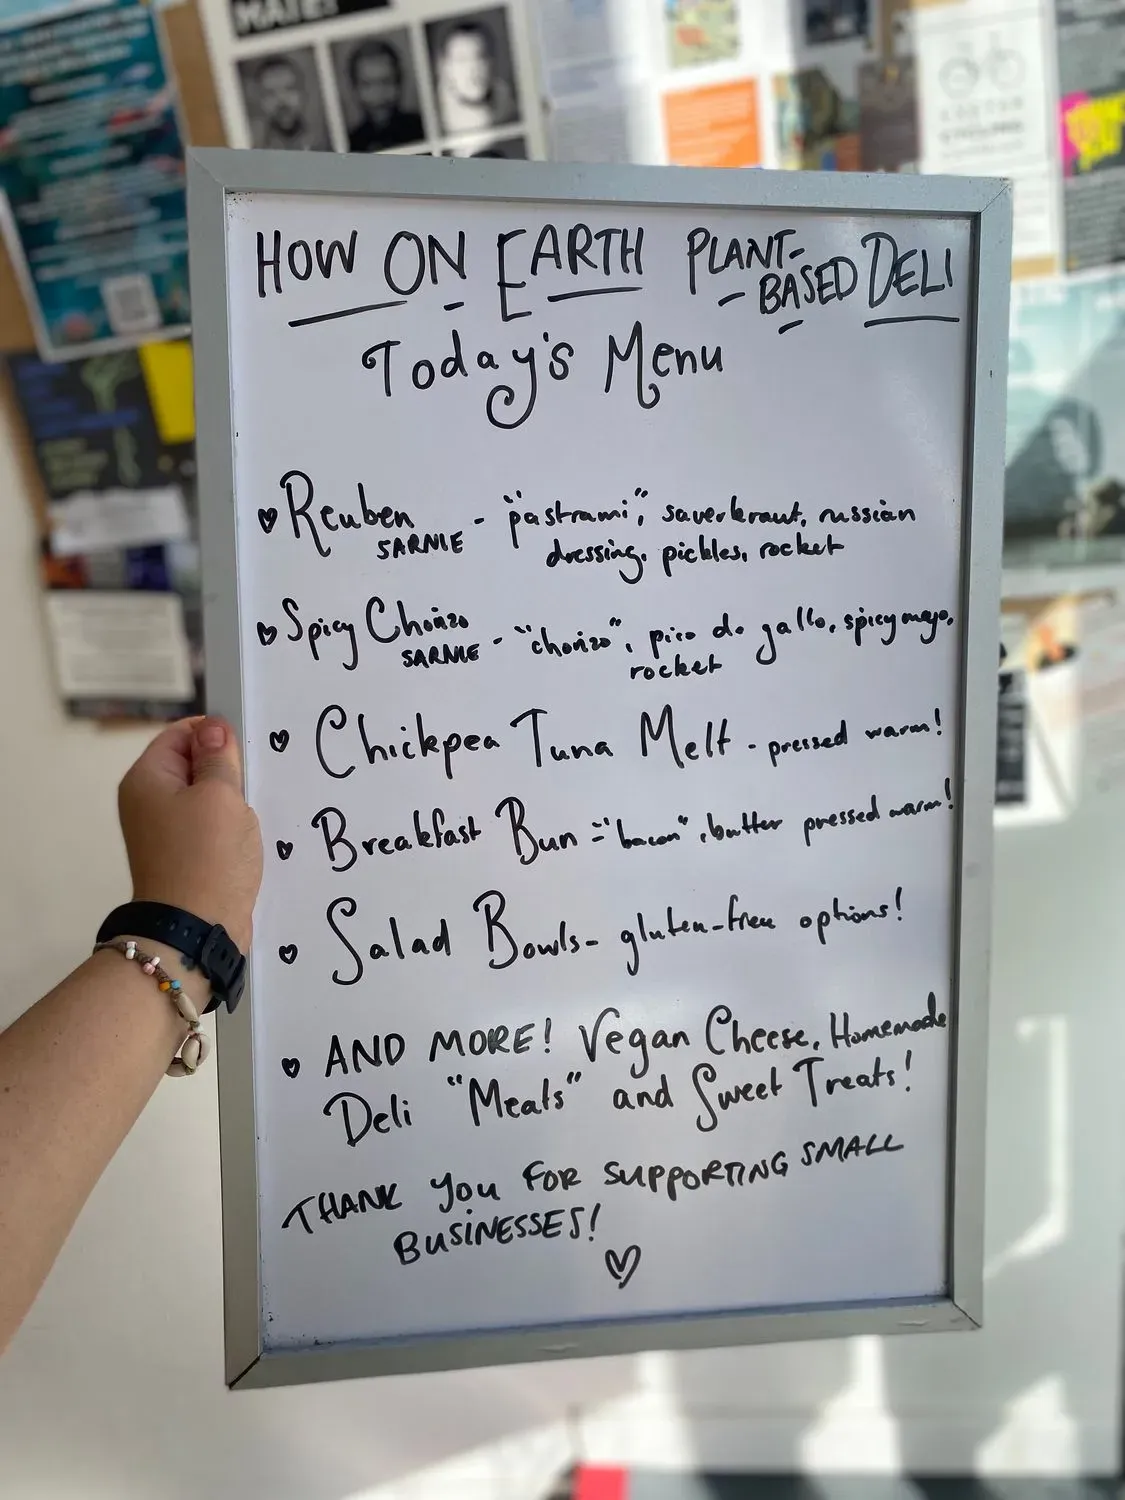 MATE!
HOW ON EARTH PLANT-
BASED DELI
Today's Menu
Reuben - "pastrami", sauerkraut, russian
SARNIE dressing, pickles, rocket
Spicy Chorizo - "chorizo", pico de gallo, spicy mayo,
SARNIE rocket
Chickpea Tuna Melt - pressed warm!
Breakfast Bun - "bacon", butter pressed warm!
Salad Bowls - gluten-free options!
AND MORE! Vegan Cheese, Homemade
Deli "Meats" and Sweet Treats!
THANK YOU FOR SUPPORTING SMALL
BUSINESSES!